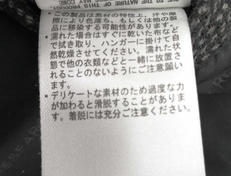 TO THE NATURE OF THIS
この製品は素材の特性上、汗や摩
擦により色落ち、もしくは他の製
品に移染する可能性があります。
・濡れた場合はすぐに乾いた布など
で拭き取り、ハンガーに掛けて自
然乾燥させてください。濡れた状
態で他の衣類などと一緒に放置さ
れることのないようにご注意願い
ます。
・デリケートな素材のため過度な力
が加わると滑脱することがありま
す。着脱には充分ご注意ください。